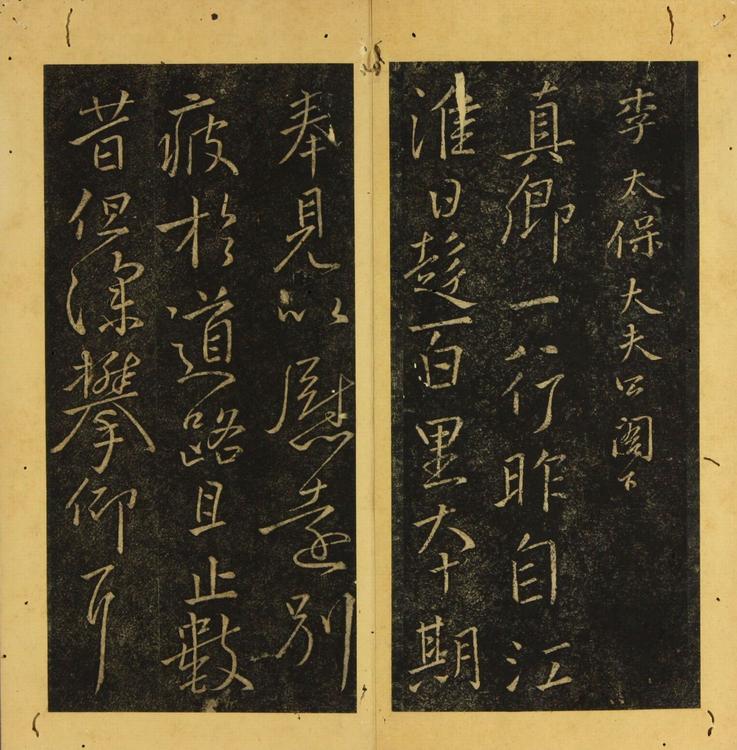 李太保大夫公閣下
真卿一行昨自江
淮日趍百里夲期
奉見以慰遠別
疲於道路且止數
昔但深攀仰耳